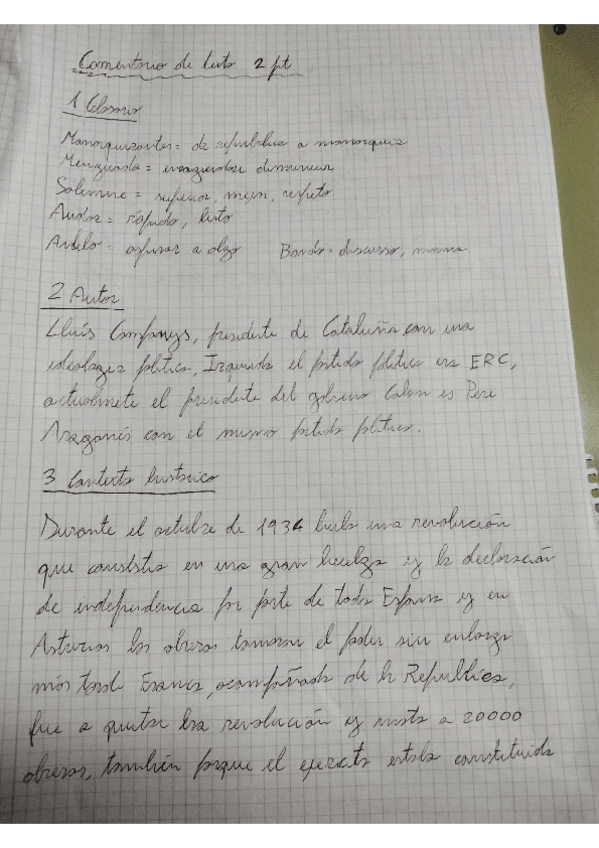 Comentario de texto 2 pt
1 Glosario
Monarquizantes = de república a monarquia
Menguada = disminuir
Solemne = superior, mejor, respeto
Audaz = rápido, listo
Anhelo = aspirar a algo Bando = discurso, norma.
2 Autor
Lluís Companys, presidente de Cataluña con una
ideologia politica, Izquierda el partido politico era ERC,
actualmente el presidente del gobierno Catalan es Pere
Aragonés con el mismo partido politico.
3 Contexto historico
Durante el octubre de 1934 hubo una revolución
que consistia en una gran huelga y la declaración
de independencia por parte de toda España y en
Asturias los obreros tomaron el poder sin embargo
más tarde Franco, acompañado de la Republica,
fue a quitar esa revolución y mato a 20000
obreros, también porque el ejercito estaba constituido